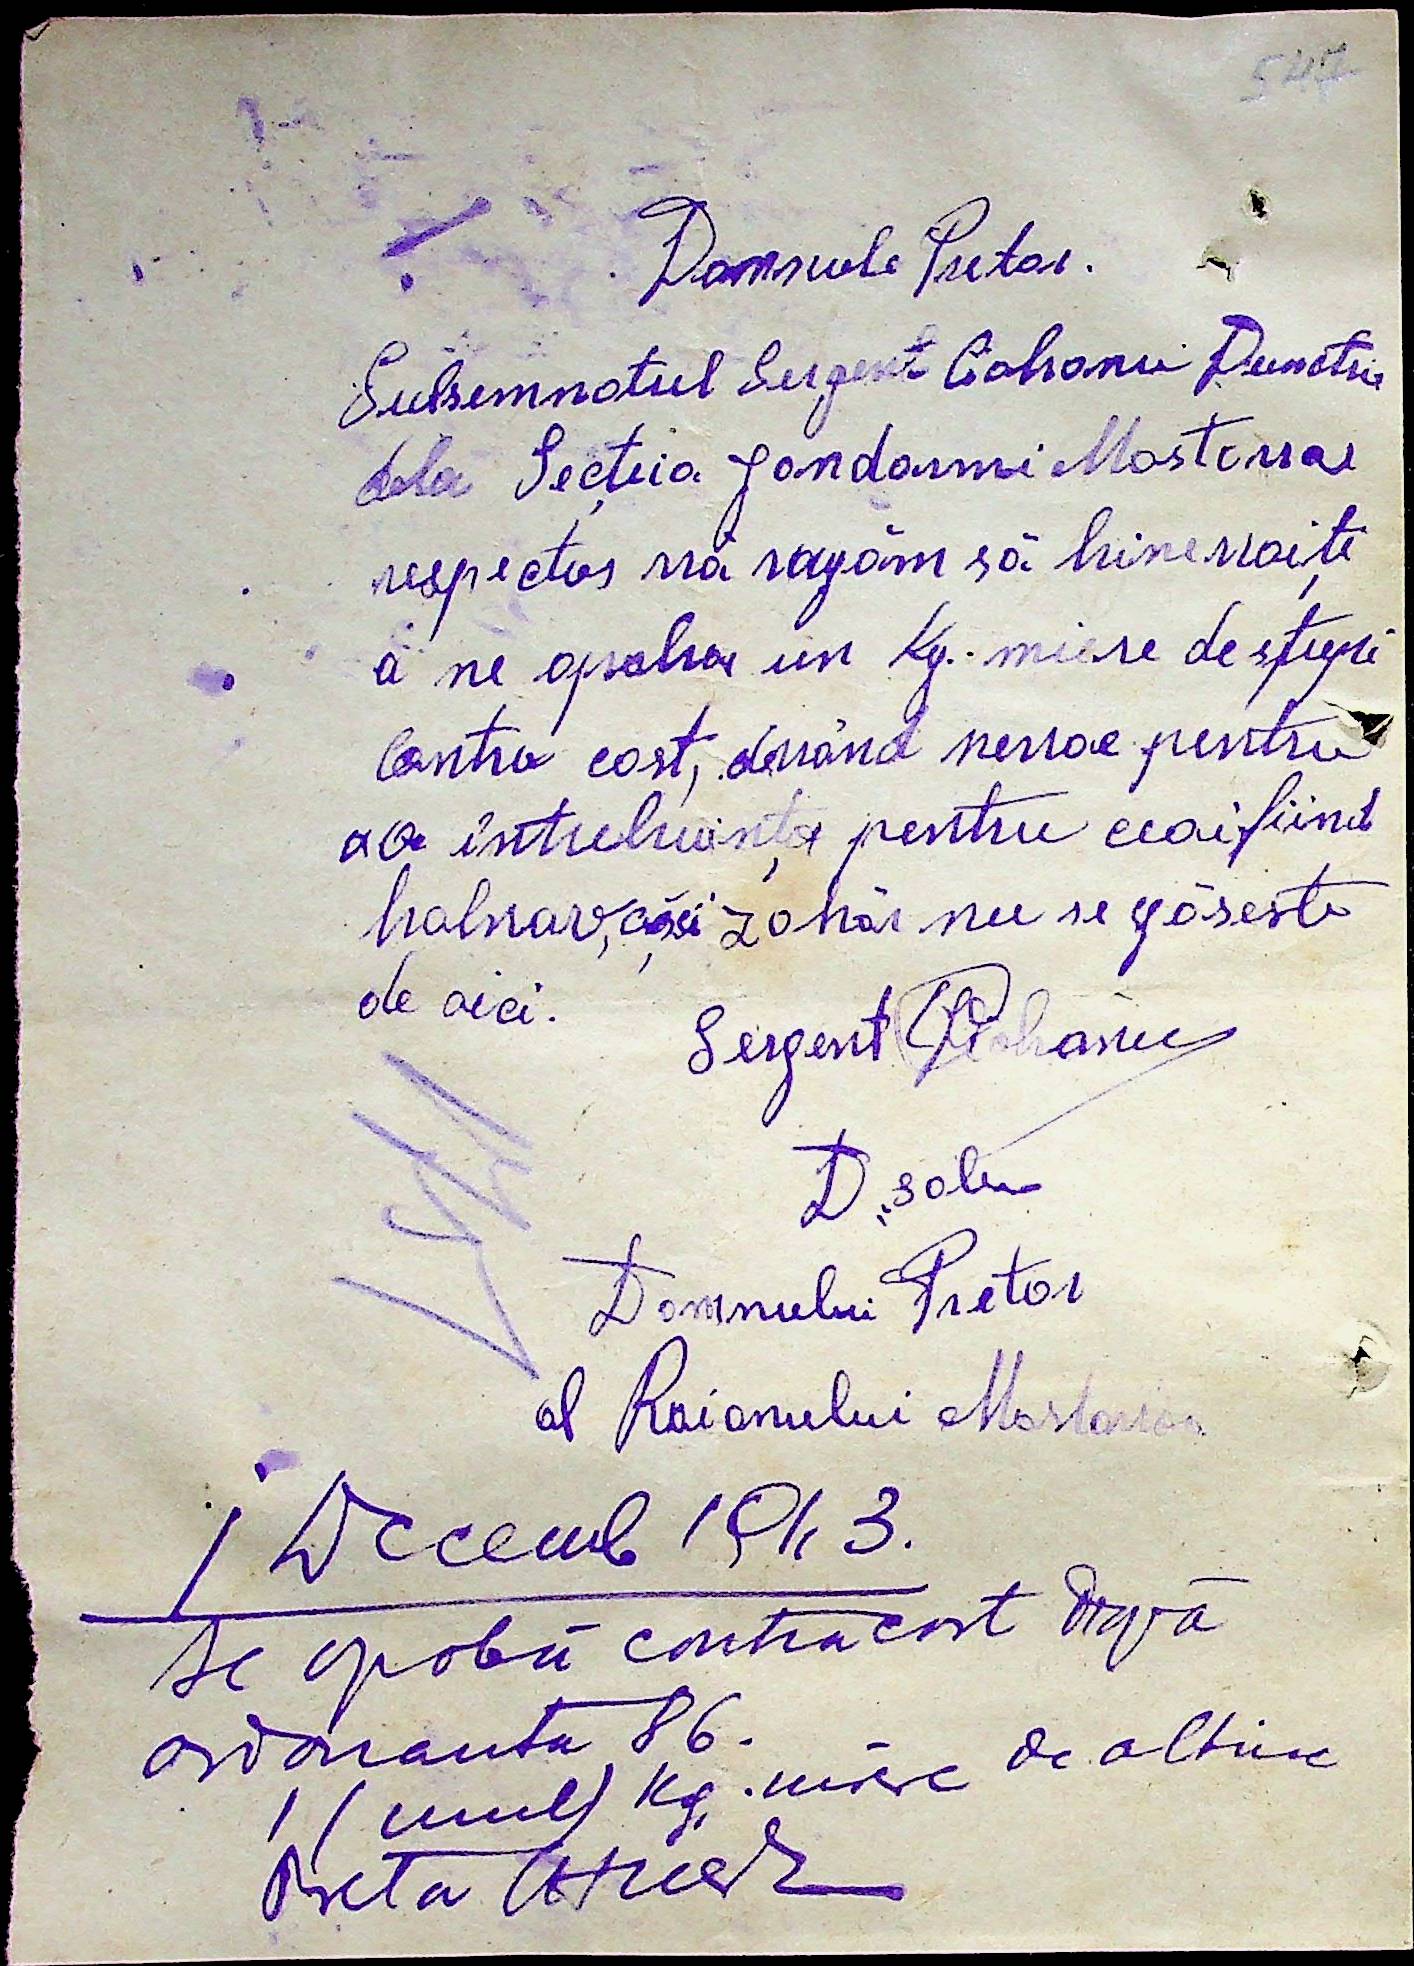 547
Domnule Pretor.
Subsemnatul Sergent Ciobanu Dumitru
dela Secția Jandarmi Mostovoe
respectos vă rugăm să binevoiți
a ne aproba un Kg. miere de stupi
contra cost, având nevoe pentru
întrebuința pentru ceai fiind
bolnav, căci zahăr nu se găsește
de aici.
Sergent Ciobanu
D. sale
Domnului Pretor
al Raionului Mostovoe
1 Decemb 1943.
Se aprobă contra cost după
ordonanta 86.
1 (unul) Kg. miere de albine
Preto